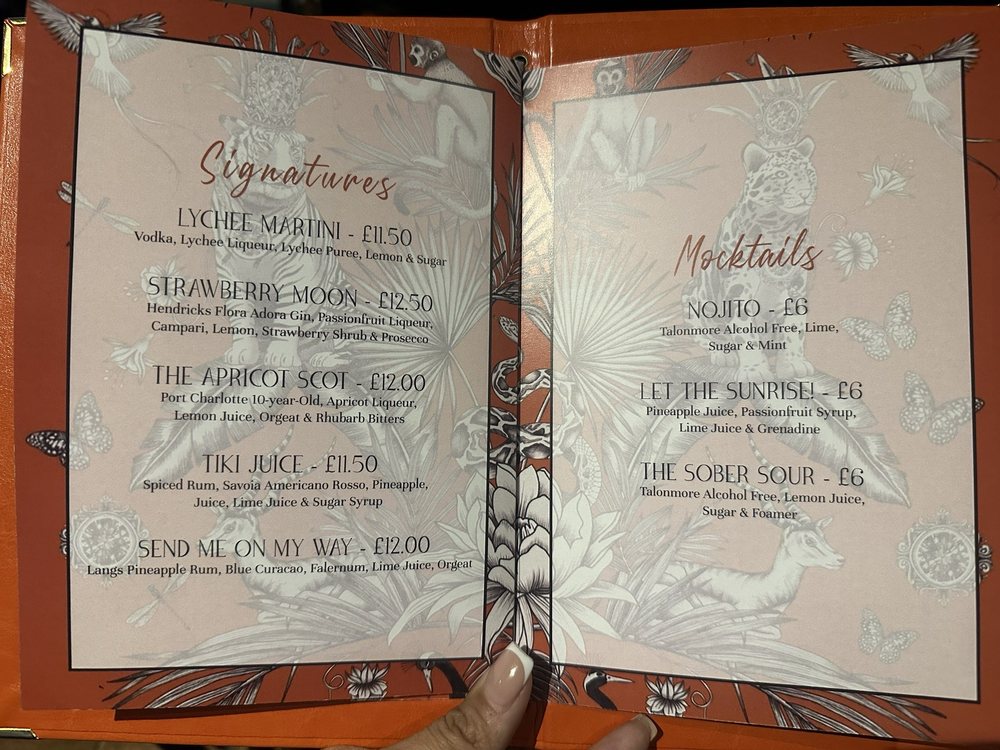 Signatures
LYCHEE MARTINI - £11.50
Vodka, Lychee Liqueur, Lychee Puree, Lemon & Sugar
STRAWBERRY MOON - £12.50
Hendricks Flora Adora Gin, Passionfruit Liqueur,
Campari, Lemon, Strawberry Shrub & Prosecco
THE APRICOT SCOT - £12.00
Port Charlotte 10-year-Old, Apricot Liqueur,
Lemon Juice, Orgeat & Rhubarb Bitters
TIKI JUICE - £11.50
Spiced Rum, Savoia Americano Rosso, Pineapple,
Juice, Lime Juice & Sugar Syrup
SEND ME ON MY WAY - £12.00
Langs Pineapple Rum, Blue Curacao, Falernum, Lime Juice, Orgeat
Mocktails
NOJITO - £6
Talonmore Alcohol Free, Lime,
Sugar & Mint
LET THE SUNRISE! - £6
Pineapple Juice, Passionfruit Syrup,
Lime Juice & Grenadine
THE SOBER SOUR - £6
Talonmore Alcohol Free, Lemon Juice,
Sugar & Foamer